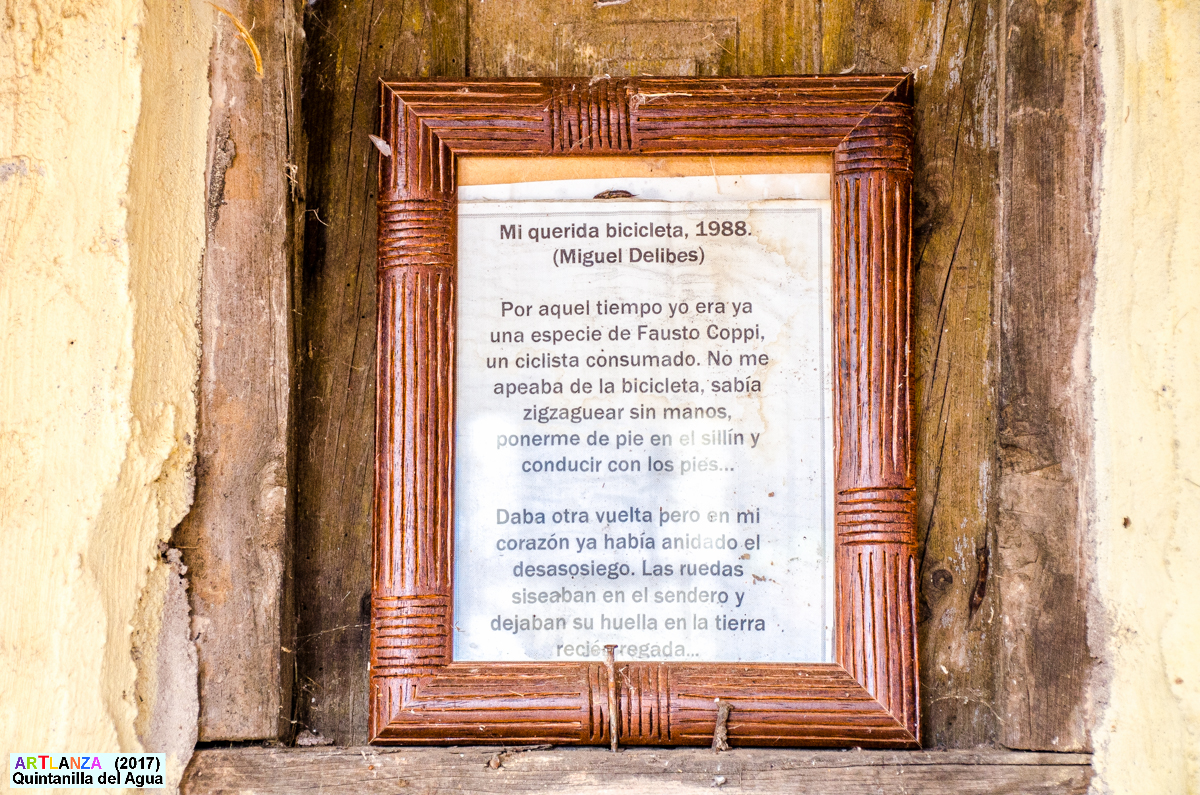 Mi querida bicicleta, 1988.
(Miguel Delibes)
Por aquel tiempo yo era ya
una especie de Fausto Coppi,
un ciclista consumado. No me
apeaba de la bicicleta, sabía
zigzaguear sin manos,
ponerme de pie en el sillín y
conducir con los pies...
Daba otra vuelta pero en mi
corazón ya había anidado el
desasosiego. Las ruedas
siseaban en el sendero y
dejaban su huella en la tierra
recién regada...
ARTLANZA (2017)
Quintanilla del Agua